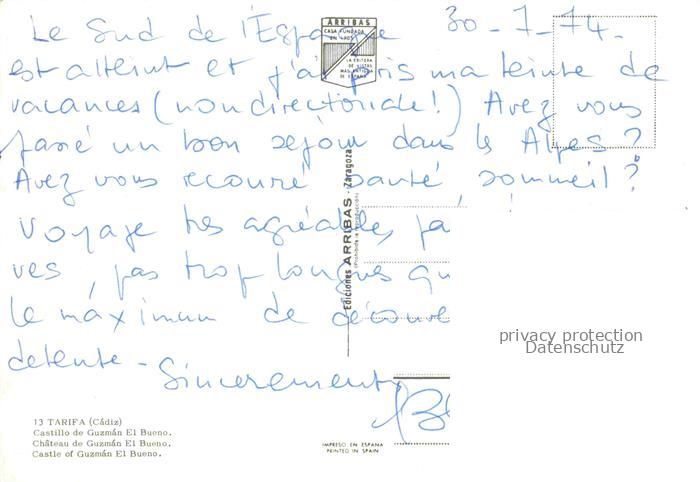 Le Sud de l'Espagne 30-7-74.
est atteint et j'ai pris ma teinte de
vacances (non directoriale!) Avez vous
passé un bon séjour dans les Alpes?
Avez vous recouvré santé, sommeil?
Voyage très agréable,
ves, pas trop longues
le maximum de
détente - Sincèrement
ARRIBAS
CASA FUNDADA
LA EDITORA
DE VISTAS
MAS ANTIGUA
DE ESPAÑA
Ediciones ARRIBAS - Zaragoza
(Prohibida la reproducción)
privacy protection
Datenschutz
13 TARIFA (Cádiz)
Castillo de Guzmán El Bueno.
Château de Guzmán El Bueno.
Castle of Guzmán El Bueno.
IMPRESO EN ESPAÑA
PRINTED IN SPAIN